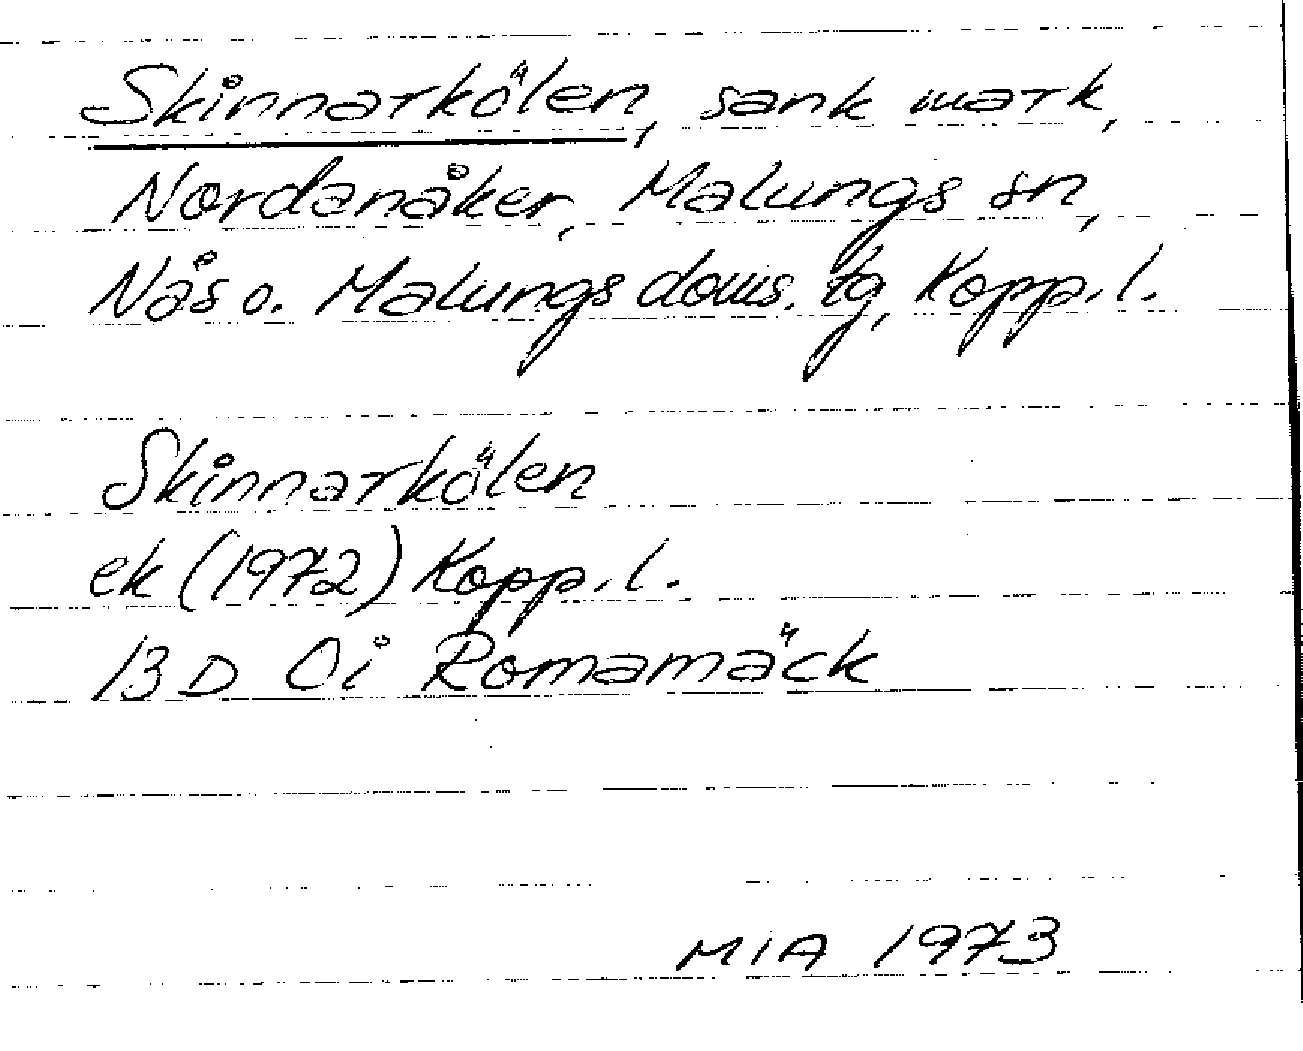 Skinnarkölen, sank mark,
Nordanåker, Malungs sn,
Nås o. Malungs doms. tg, Kopp. l.
Skinnarkölen
ek (1972) Kopp. l.
13 D 0i Romamäck
MIA 1973